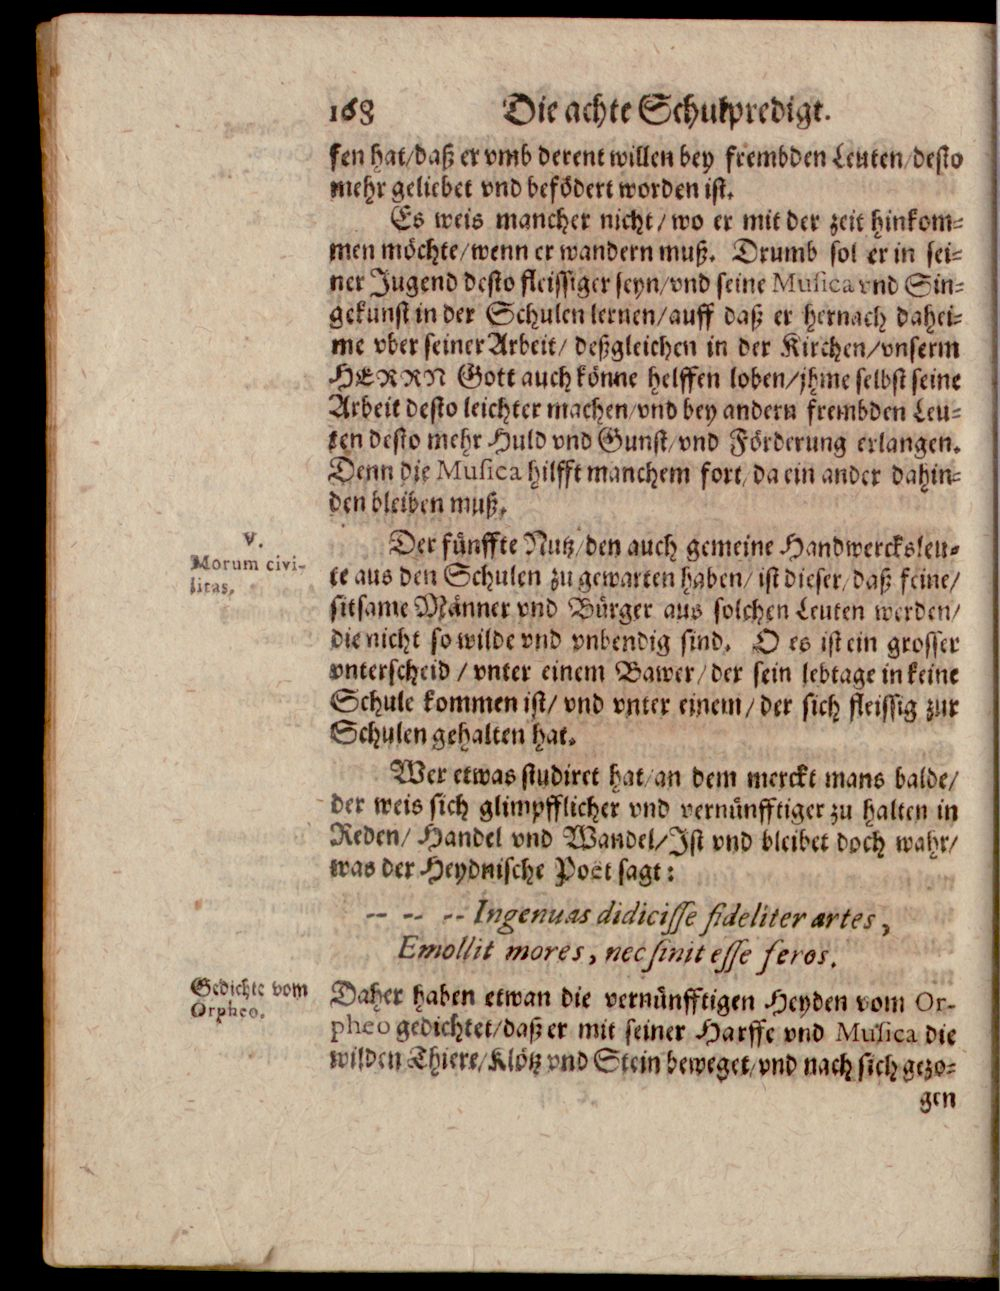 168 Die achte Schulpredigt.
sen hat/daß er vmb derent willen bey frembden Leuten/desto
mehr geliebet vnd befödert worden ist.
Es weis mancher nicht/ wo er mit der zeit hinkom-
men möchte/wenn er wandern muß. Drumb sol er in sei-
ner Jugend desto fleissiger seyn/vnd seine Musica vnd Sin-
gekunst in der Schulen lernen/auff daß er hernach dahei-
me vber seiner Arbeit/ deßgleichen in der Kirchen/vnserm
HERRN Gott auch könne helffen loben/jhme selbst seine
Arbeit desto leichter machen/vnd bey andern frembden Leu-
ten desto mehr Huld vnd Gunst/vnd Förderung erlangen.
Denn die Musica hilfft manchem fort/da ein ander dahin-
den bleiben muß.
V.
Morum civi-
litas.
Der fünffte Nutz/den auch gemeine Handwercksleu-
te aus den Schulen zu gewarten haben/ ist dieser/daß feine/
sitsame Männer vnd Bürger aus solchen Leuten werden/
die nicht so wilde vnd vnbendig sind. O es ist ein grosser
vnterscheid / vnter einem Bawer/der sein lebtage in keine
Schule kommen ist/ vnd vnter einem/ der sich fleissig zur
Schulen gehalten hat.
Wer etwas studiret hat/an dem merckt mans balde/
der weis sich glimpfflicher vnd vernünfftiger zu halten in
Reden/ Handel vnd Wandel/Ist vnd bleibet doch wahr/
was der Heydnische Poët sagt:
-- -- -- Ingenuas didicisse fideliter artes,
Emollit mores, nec sinit esse feros.
Gedichte vom
Orpheo.
Daher haben etwan die vernünfftigen Heyden vom Or-
pheo gedichtet/daß er mit seiner Harffe vnd Musica die
wilden Thiere/Klötz vnd Stein beweget/vnd nach sich gezo-
gen